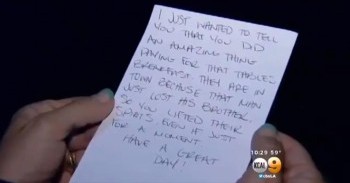 I JUST WANTED TO TELL
YOU THAT YOU DID
AN AMAZING THING
PAYING FOR THAT TABLE'S
BREAKFAST. THEY ARE IN
TOWN BECAUSE THAT MAN
JUST LOST HIS BROTHER.
SO YOU LIFTED THEIR
SPIRITS, EVEN IF JUST
FOR A MOMENT.
HAVE A GREAT
DAY!
10:25 59°
KCAL 9